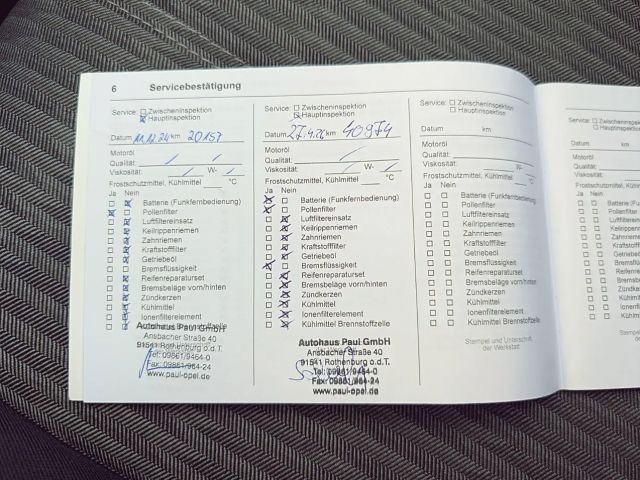 6 Servicebestätigung
Service: Zwischeninspektion
Hauptinspektion
Datum 11.12.24 km 20157
Motoröl
Qualität:
Viskosität: W-
Frostschutzmittel, Kühlmittel °C
Ja Nein
Batterie (Funkfernbedienung)
Pollenfilter
Luftfiltereinsatz
Keilrippenriemen
Zahnriemen
Kraftstofffilter
Getriebeöl
Bremsflüssigkeit
Reifenreparaturset
Bremsbeläge vorn/hinten
Zündkerzen
Kühlmittel
Ionenfilterelement
Autohaus Paul GmbH
Ansbacher Straße 40
91541 Rothenburg o.d.T.
Tel: 09861/9464-0
Fax: 09861/964-24
www.paul-opel.de
Service: Zwischeninspektion
Hauptinspektion
Datum 27.4.26 km 40974
Motoröl
Qualität:
Viskosität: W-
Frostschutzmittel, Kühlmittel °C
Ja Nein
Batterie (Funkfernbedienung)
Pollenfilter
Luftfiltereinsatz
Keilrippenriemen
Zahnriemen
Kraftstofffilter
Getriebeöl
Bremsflüssigkeit
Reifenreparaturset
Bremsbeläge vorn/hinten
Zündkerzen
Kühlmittel
Ionenfilterelement
Kühlmittel Brennstoffzelle
Autohaus Paul GmbH
Ansbacher Straße 40
91541 Rothenburg o.d.T.
Tel: 09861/9464-0
Fax: 09861/964-24
www.paul-opel.de
Service: Zwischeninspektion
Hauptinspektion
Datum km
Motoröl
Qualität:
Viskosität: W-
Frostschutzmittel, Kühlmittel °C
Ja Nein
Batterie (Funkfernbedienung)
Pollenfilter
Luftfiltereinsatz
Keilrippenriemen
Zahnriemen
Kraftstofffilter
Getriebeöl
Bremsflüssigkeit
Reifenreparaturset
Bremsbeläge vorn/hinten
Zündkerzen
Kühlmittel
Ionenfilterelement
Kühlmittel Brennstoffzelle
Stempel und Unterschrift
der Werkstatt
Service: Zwischeninspektion
Hauptinspektion
Datum km
Motoröl
Qualität:
Viskosität:
Frostschutzmittel, Kühl
Ja Nein
Batterie (Funk
Pollenfilter
Luftfiltereins
Keilrippenri
Zahnriemen
Kraftstofffil
Getriebeöl
Bremsflüss
Reifenrepa
Bremsbel
Zündker
Kühlmit
Ionenfi
Kühlm
Stempel
d